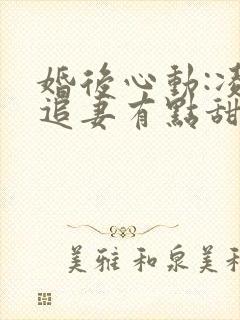 婚後心動:凌
追妻有點甜
美雅和泉美和